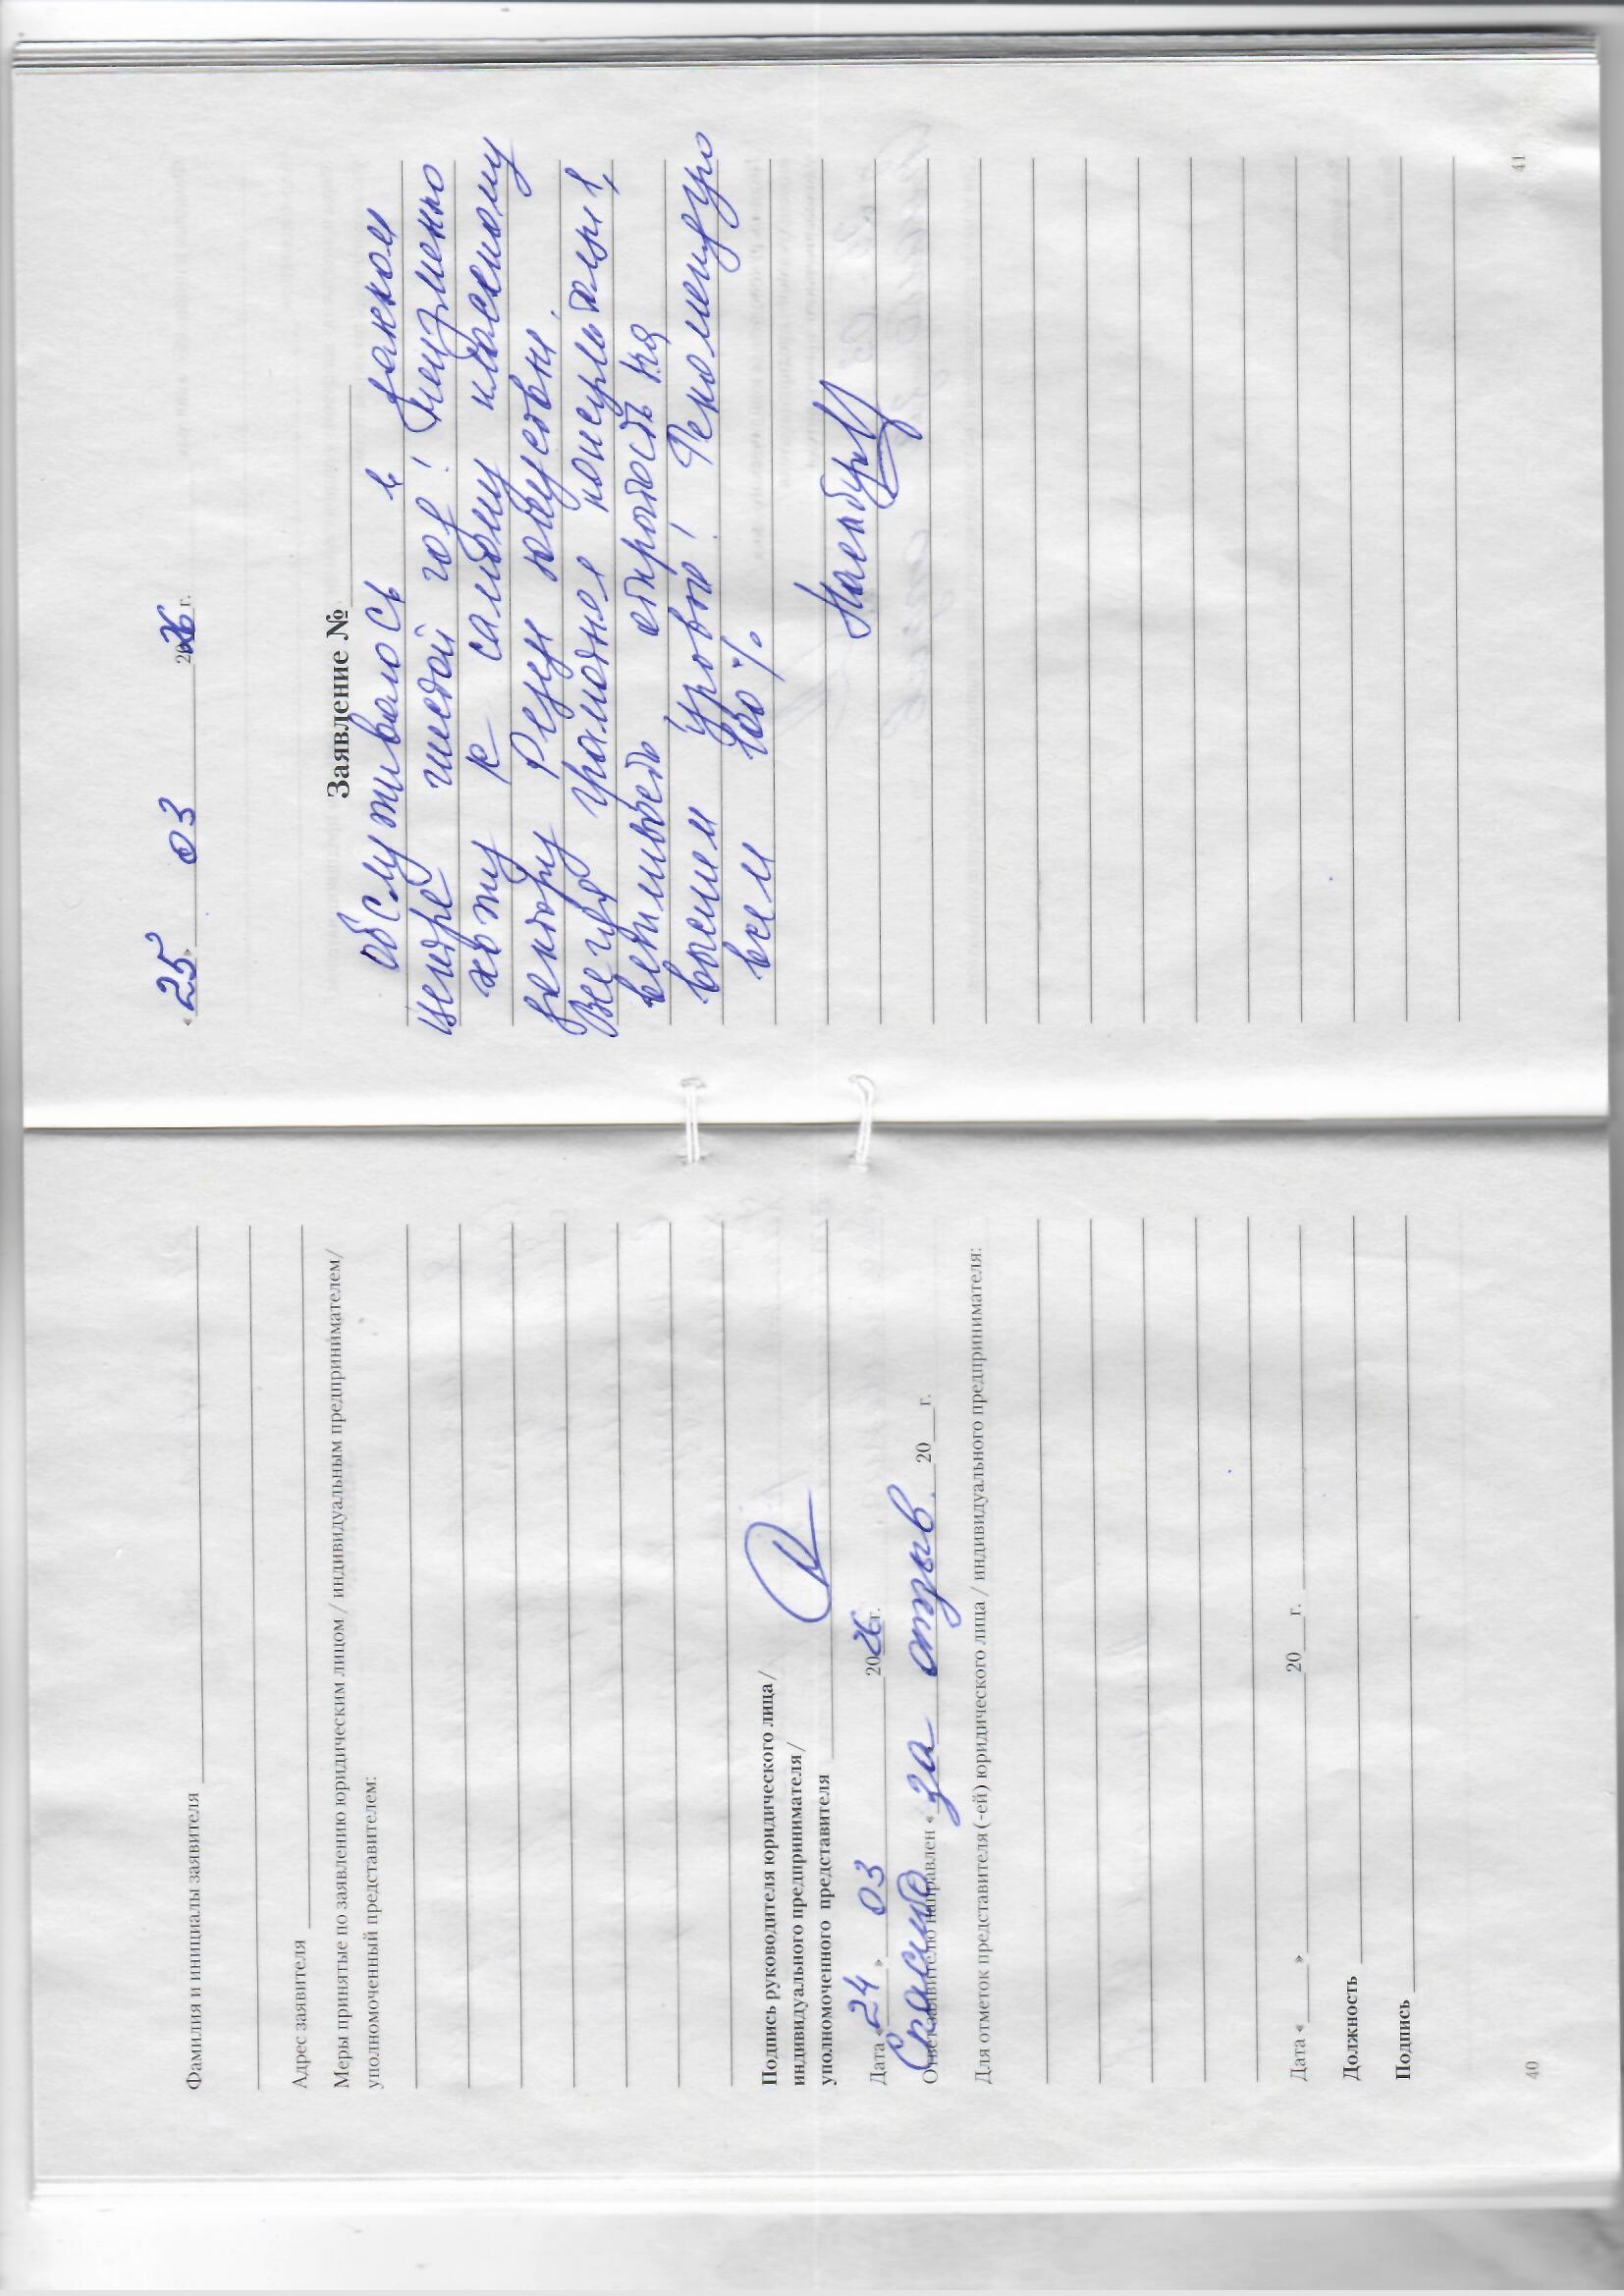 Фамилия и инициалы заявителя
Адрес заявителя
Меры принятые по заявлению юридическим лицом / индивидуальным предпринимателем/
уполномоченный представителем:
Подпись руководителя юридического лица /
индивидуального предпринимателя /
уполномоченного представителя
Дата « 24 » 03 2026 г.
Ответ заявителю направлен « 20 г.
Спасибо за отзыв.
Для отметок представителя (-ей) юридического лица / индивидуального предпринимателя:
Дата « » 20 г.
Должность
Подпись
40
« 25 » 03 2026 г.
Заявление №
Обслуживаюсь в данном
центре шестой год! Неизменно
хожу к самому классному
доктору
Всегда грамотная консультация,
вежливость открытость на
высшем уровне! Рекомендую
всем 100%
41